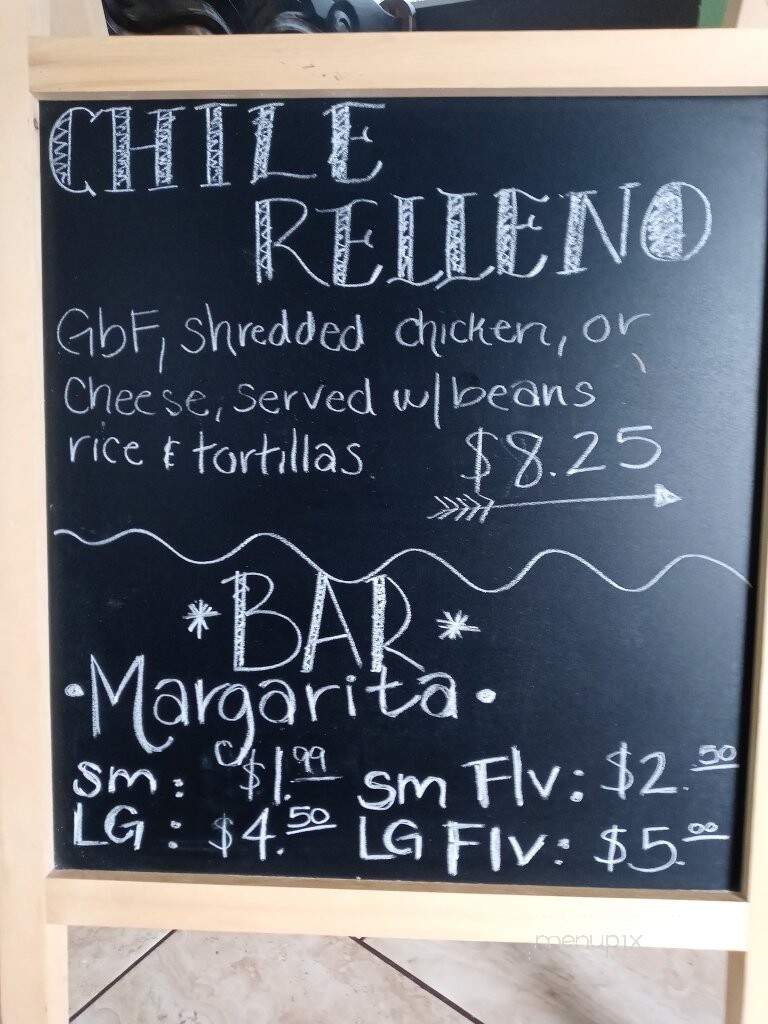 CHILE
RELLENO
GbF, shredded chicken, or
Cheese, served w/beans
rice & tortillas $8.25
*BAR*
•Margarita•
sm: $1.99 sm Flv: $2.50
LG: $4.50 LG Flv: $5.00
menupix